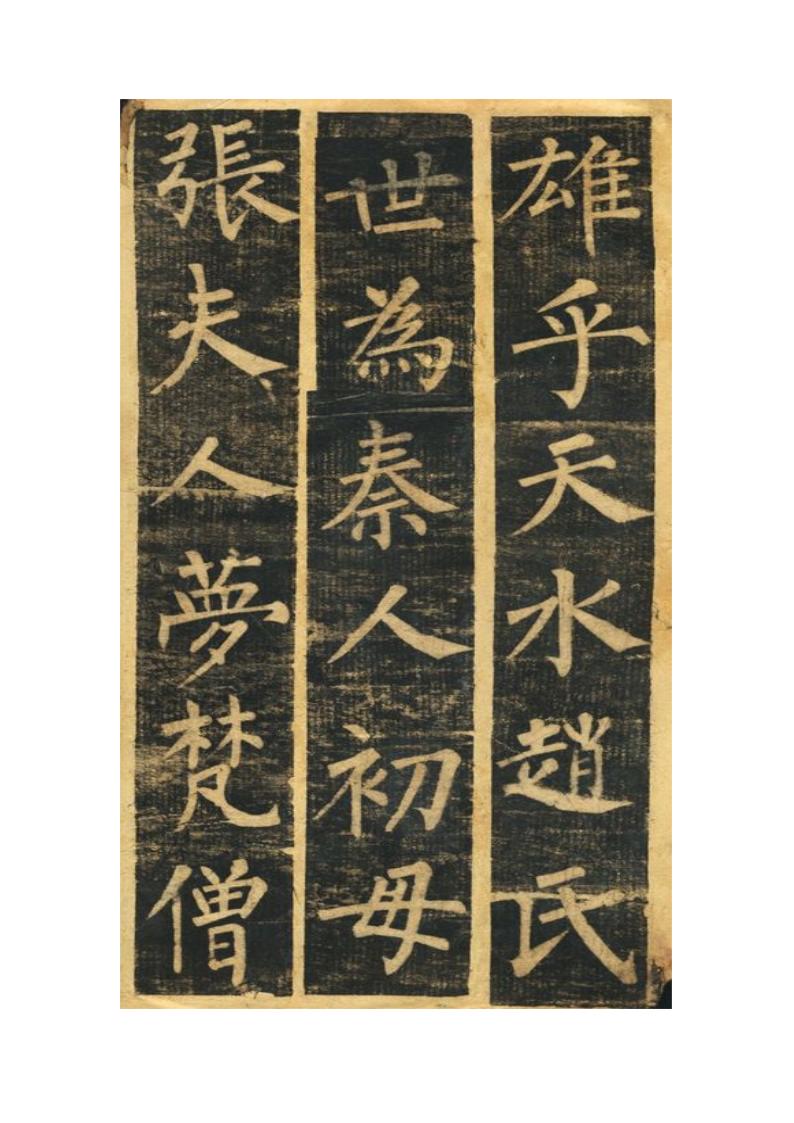 雄乎天水趙氏
世為秦人初母
張夫人夢梵僧